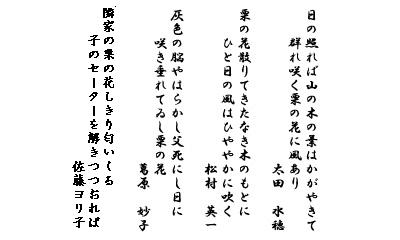 日の照れば山の木の葉はかがやきて
群れ咲く栗の花に風あり
太田 水穂
栗の花散りてきたなき木のもとに
ひと日の風はひややかに吹く
松村 英一
灰色の脳やはらかし父死にし日に
咲き垂れてゐし栗の花
葛原 妙子
隣家の栗の花しきり匂いくる
子のセーターを解きつつおれば
佐藤ヨリ子